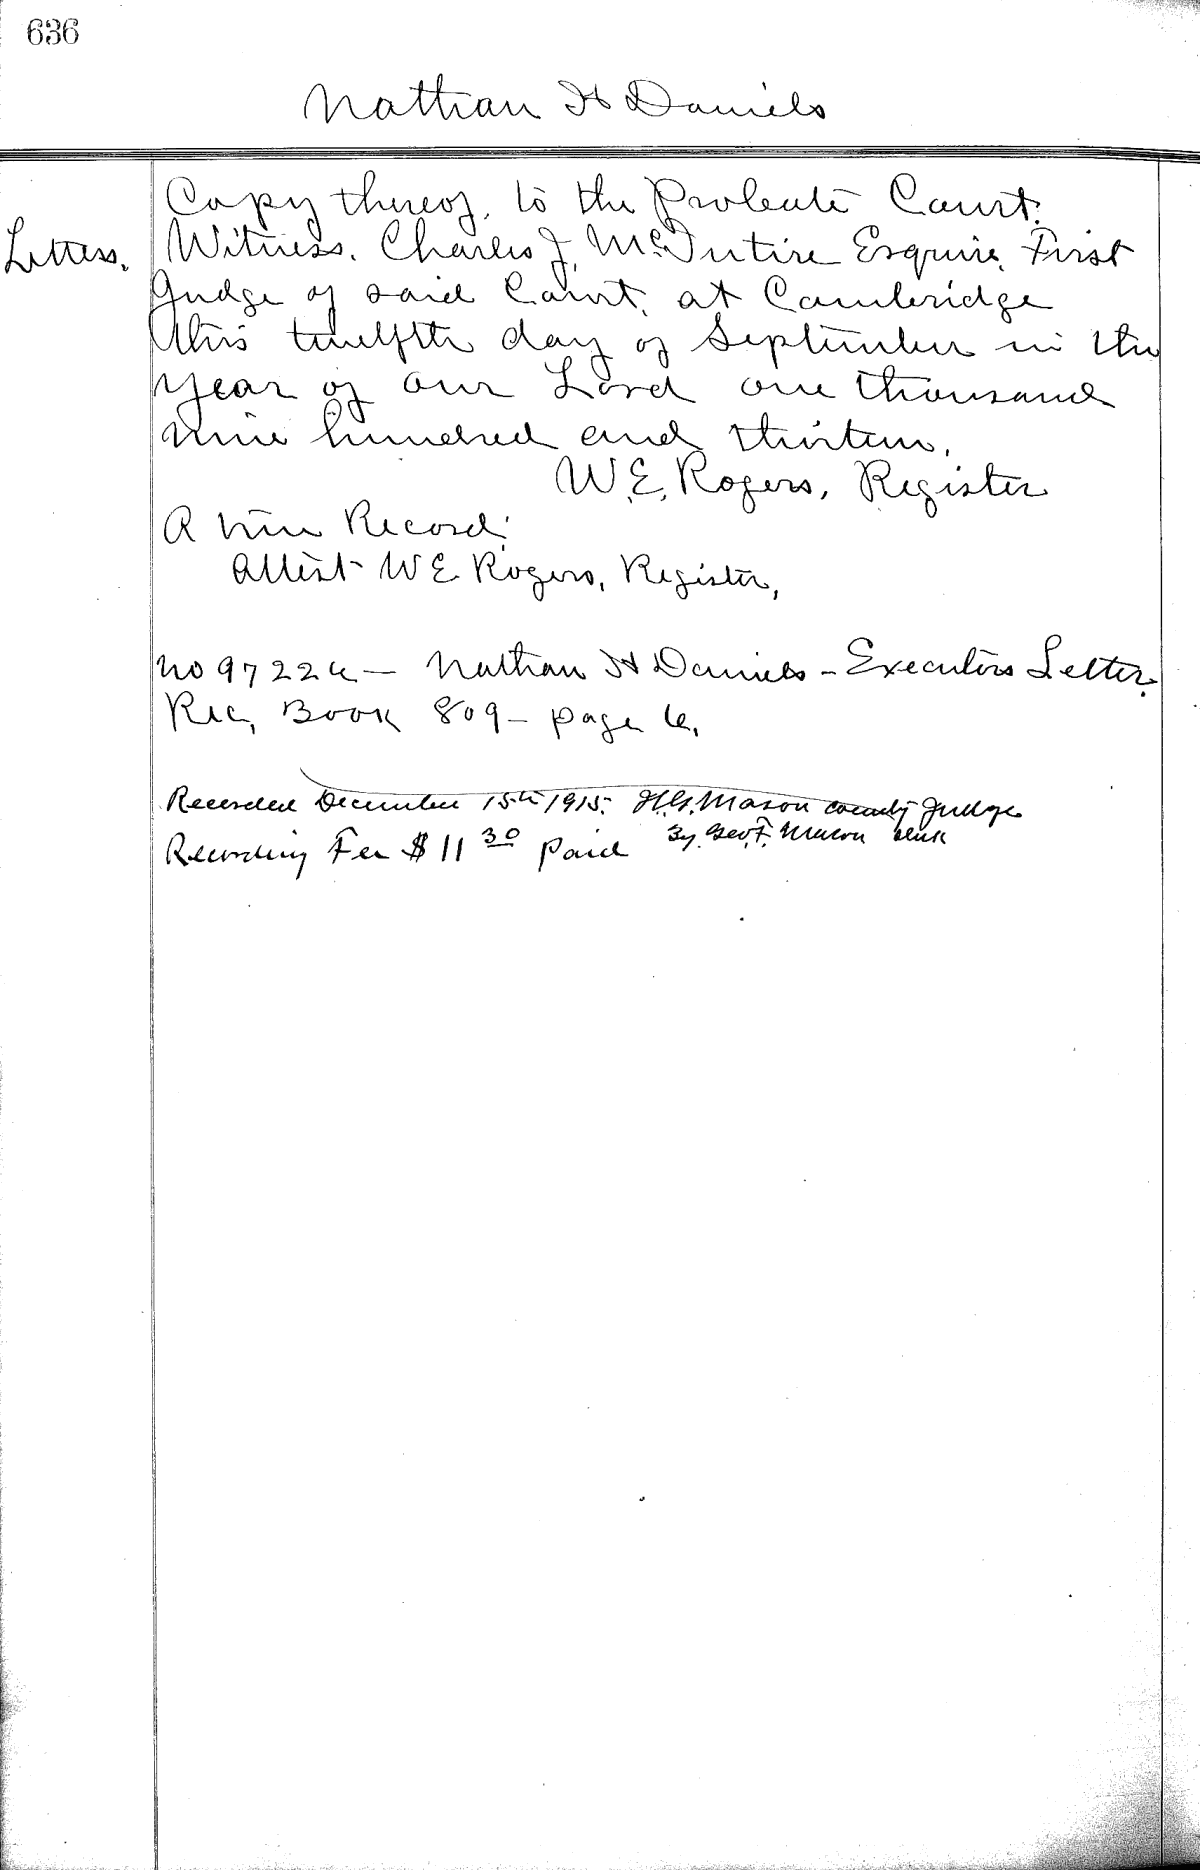 636
Nathan H Daniels
Copy thereof, to the Probate Court.
Letters.
Witness, Charles J. McIntire Esquire, First
Judge of said Court, at Cambridge
this twelfth day of September in the
year of our Lord one thousand
nine hundred and thirteen.
W. E. Rogers, Register
A true Record.
Attest W E Rogers, Register,
No 97224 — Nathan H Daniels - Executors Letter.
Rec, Book 809 - page 6.
Recorded December 15th 1915. H. G. Mason County Judge
By Geo. F. Mason Clerk
Recording Fee $11 30 paid